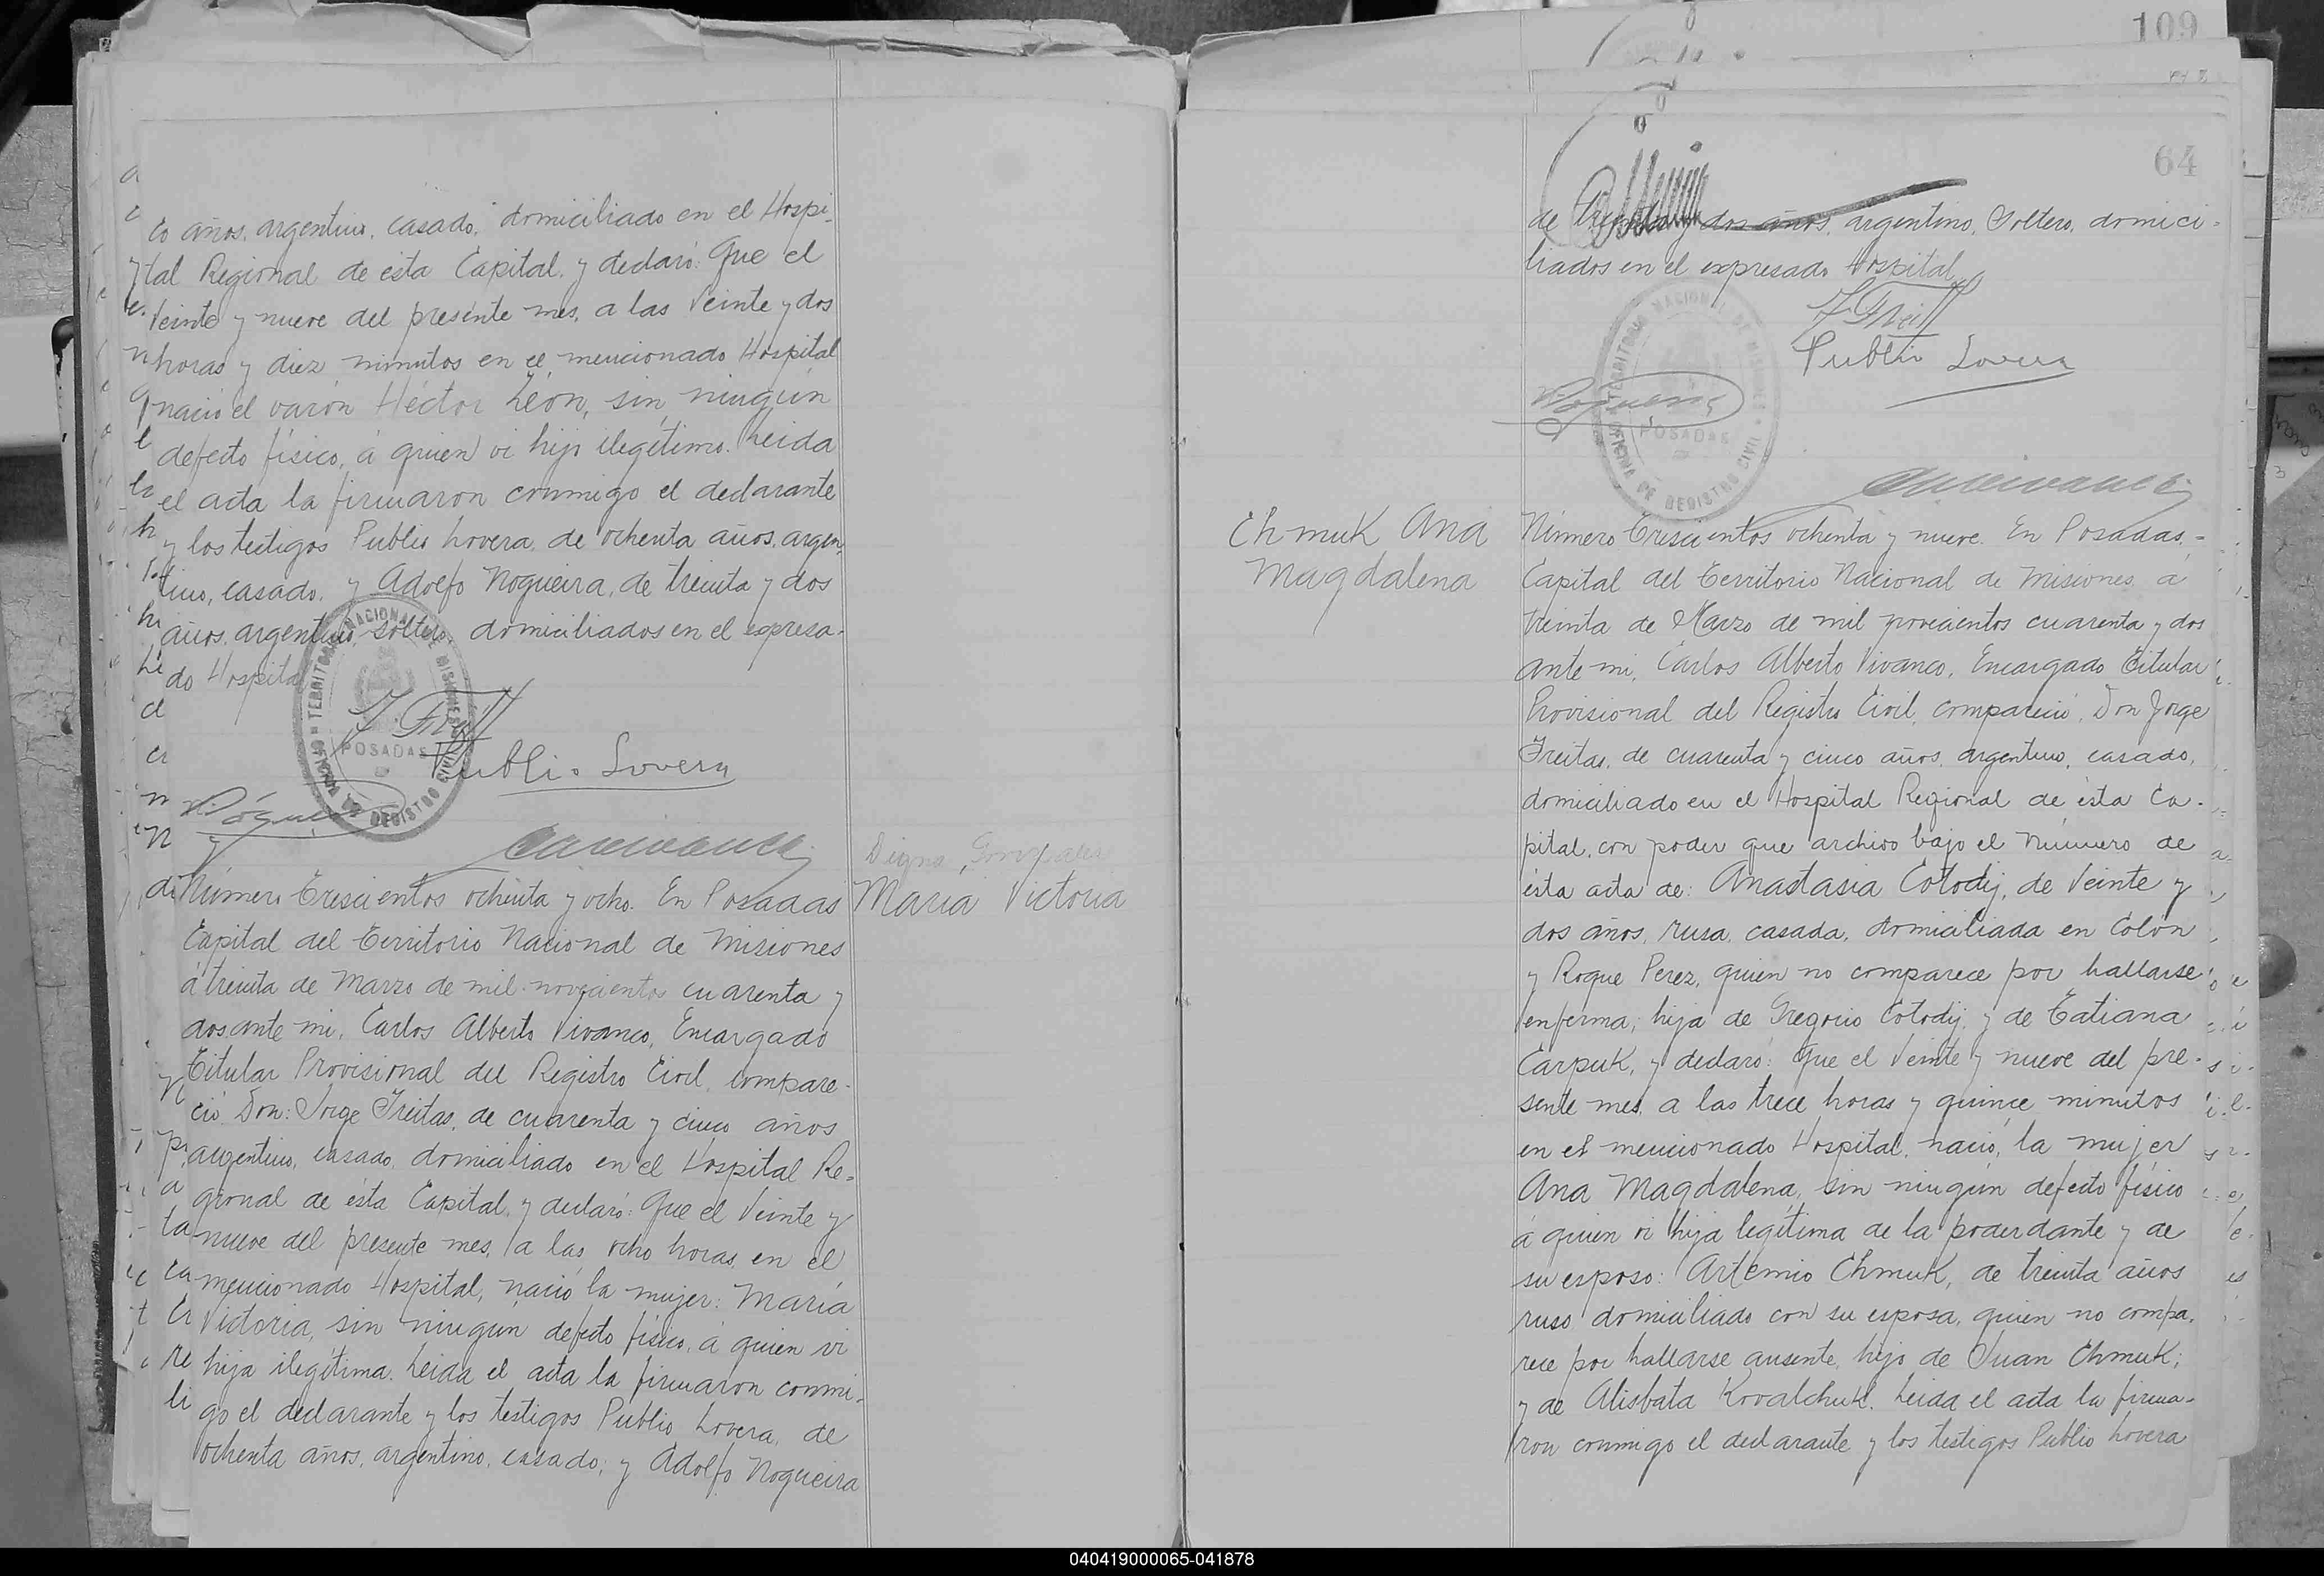 co años, argentino, casado, domiciliado en el Hospi-
tal Regional de ésta Capital, y declaró: Que el
Veinte y nueve del presente mes, a las Veinte y dos
horas y diez minutos en el mencionado Hospital
nació el varón Héctor León, sin ningún
defecto físico, á quien vi hijo ilegítimo. Leida
el acta la firmaron conmigo el declarante
y los testigos Publio Lovera, de ochenta años, argen-
tino, casado, y Adolfo Nogueira, de treinta y dos
años, argentino, soltero, domiciliados en el expresa-
do Hospital
TERRITORIO NACIONAL DE MISIONES
POSADAS
OFICINA DE REGISTRO CIVIL
Publio Lovera
Digna
María Victoria
Número Trescientos ochenta y ocho. En Posadas
Capital del Territorio Nacional de Misiones
á treinta de Marzo de mil novecientos cuarenta y
dos ante mi, Carlos Alberto Vivanco, Encargado
Titular Provisional del Registro Civil, compare-
ció Don: Jorge Freitas, de cuarenta y cinco años
argentino, casado, domiciliado en el Hospital Re-
gional de ésta Capital, y declaró: Que el Veinte y
nueve del presente mes, a las ocho horas, en el
mencionado Hospital, nació la mujer: María
Victoria, sin ningún defecto físico, á quien vi
hija ilegítima. Leida el acta la firmaron conmi-
go el declarante y los testigos Publio Lovera, de
ochenta años, argentino, casado; y Adolfo Nogueira
109
64
de treinta y dos años, argentino, Soltero, domici-
liados en el expresado Hospital
Publio Lovera
TERRITORIO NACIONAL DE MISIONES
POSADAS
OFICINA DE REGISTRO CIVIL
Chmuk Ana
Magdalena
Número Trescientos ochenta y nueve. En Posadas,-
Capital del Territorio Nacional de Misiones, á
treinta de Marzo de mil novecientos cuarenta y dos
ante mi, Carlos Alberto Vivanco, Encargado Titular
Provisional del Registro Civil, compareció, Don Jorge
Freitas, de cuarenta y cinco años, argentino, casado,
domiciliado en el Hospital Regional de ésta Ca-
pital, con poder que archivo bajo el número de
ésta acta de: Anastasia Cotodij, de Veinte y
dos años, rusa, casada, domiciliada en Colón
y Roque Perez, quien no comparece por hallarse
enferma; hija de Gregorio Cotodij, y de Tatiana
Carpuk, y declaró: Que el Veinte y nueve del pre-
sente mes, a las trece horas y quince minutos
en el mencionado Hospital, nació, la mujer
Ana Magdalena, sin ningún defecto físico
á quien vi hija legítima de la poderdante y de
su esposo: Artemio Chmuk, de treinta años
ruso domiciliado con su esposa, quien no compa-
rece por hallarse ausente, hijo de Juan Chmuk;
y de Alisbata Kovalchuk. Leida el acta la firma-
ron conmigo el declarante y los testigos Publio Lovera
040419000065-041878